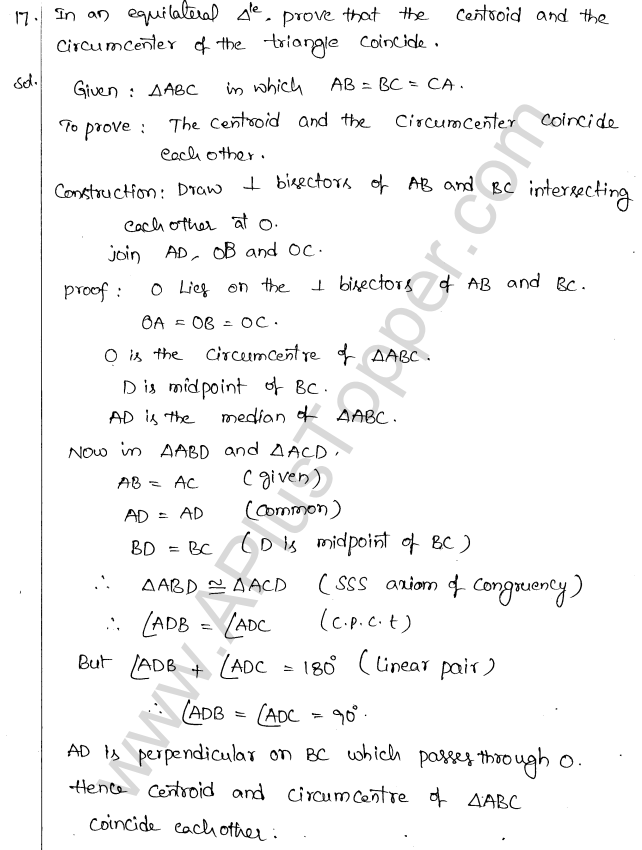 17. In an equilateral Δle, prove that the centroid and the
circumcenter of the triangle coincide.
Sol. Given : ΔABC in which AB = BC = CA.
To prove : The centroid and the circumcenter coincide
each other.
Construction: Draw ⊥ bisectors of AB and BC intersecting
each other at O.
join AD, OB and OC.
proof : O Lies on the ⊥ bisectors of AB and BC.
OA = OB = OC.
O is the circumcentre of ΔABC.
D is midpoint of BC.
AD is the median of ΔABC.
Now in ΔABD and ΔACD,
AB = AC (given)
AD = AD (common)
BD = BC (D is midpoint of BC)
∴ ΔABD ≅ ΔACD (SSS axiom of congruency)
∴ ∠ADB = ∠ADC (C.P.C.t)
But ∠ADB + ∠ADC = 180° (linear pair)
∴ ∠ADB = ∠ADC = 90°.
AD is perpendicular on BC which passes through O.
Hence centroid and circumcentre of ΔABC
coincide each other.
www.APlusTopper.com